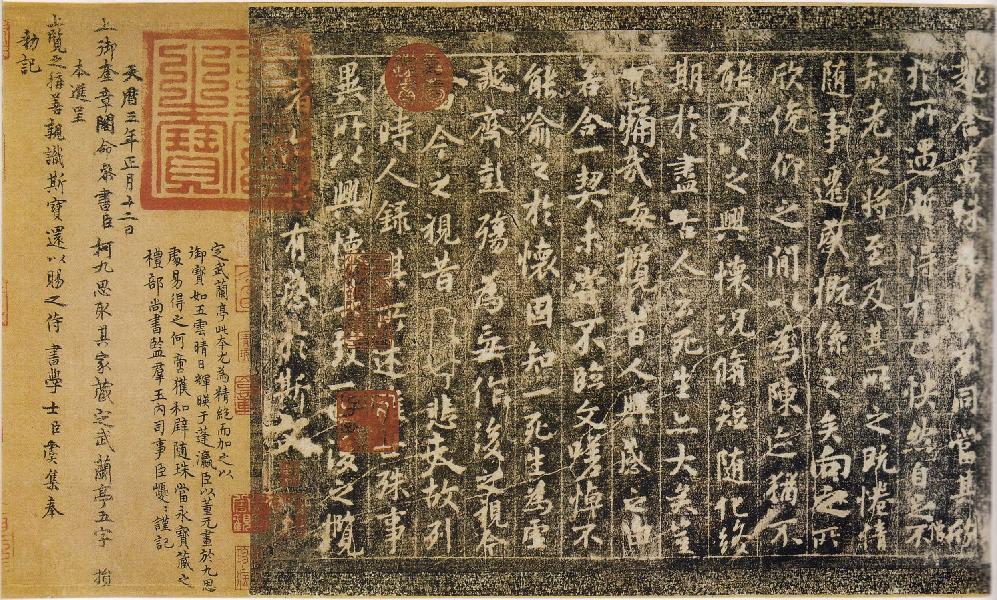 趣舍萬殊靜躁不同當其欣
於所遇蹔得於己怏然自足不
知老之將至及其所之既惓情
随事遷感慨係之矣向之所
欣俛仰之閒以為陳迹猶不
能不以之興懷況脩短随化終
期於盡古人云死生亦大矣豈
不痛哉每攬昔人興感之由
若合一契未嘗不臨文嗟悼不
能喻之於懷固知一死生為虛
誕齊彭殤為妄作後之視今
亦由今之視昔悲夫故列
叙時人錄其所述雖世殊事
異所以興懷其致一也後之攬
者亦將有感於斯文
定武蘭亭此本尤為精絕而加之以
御寶如五雲晴日輝暎于蓬瀛臣以董元畫於九思
處易得之何啻獲和璧随珠當永寶藏之
禮部尚書監羣玉內司事臣巙〻謹記
天曆三年正月十二日
上御奎章閣命叅書臣柯九思取其家藏定武蘭亭五字損
本進呈
上覽之稱善親識斯寶還以賜之侍書學士臣虞集奉
勅記